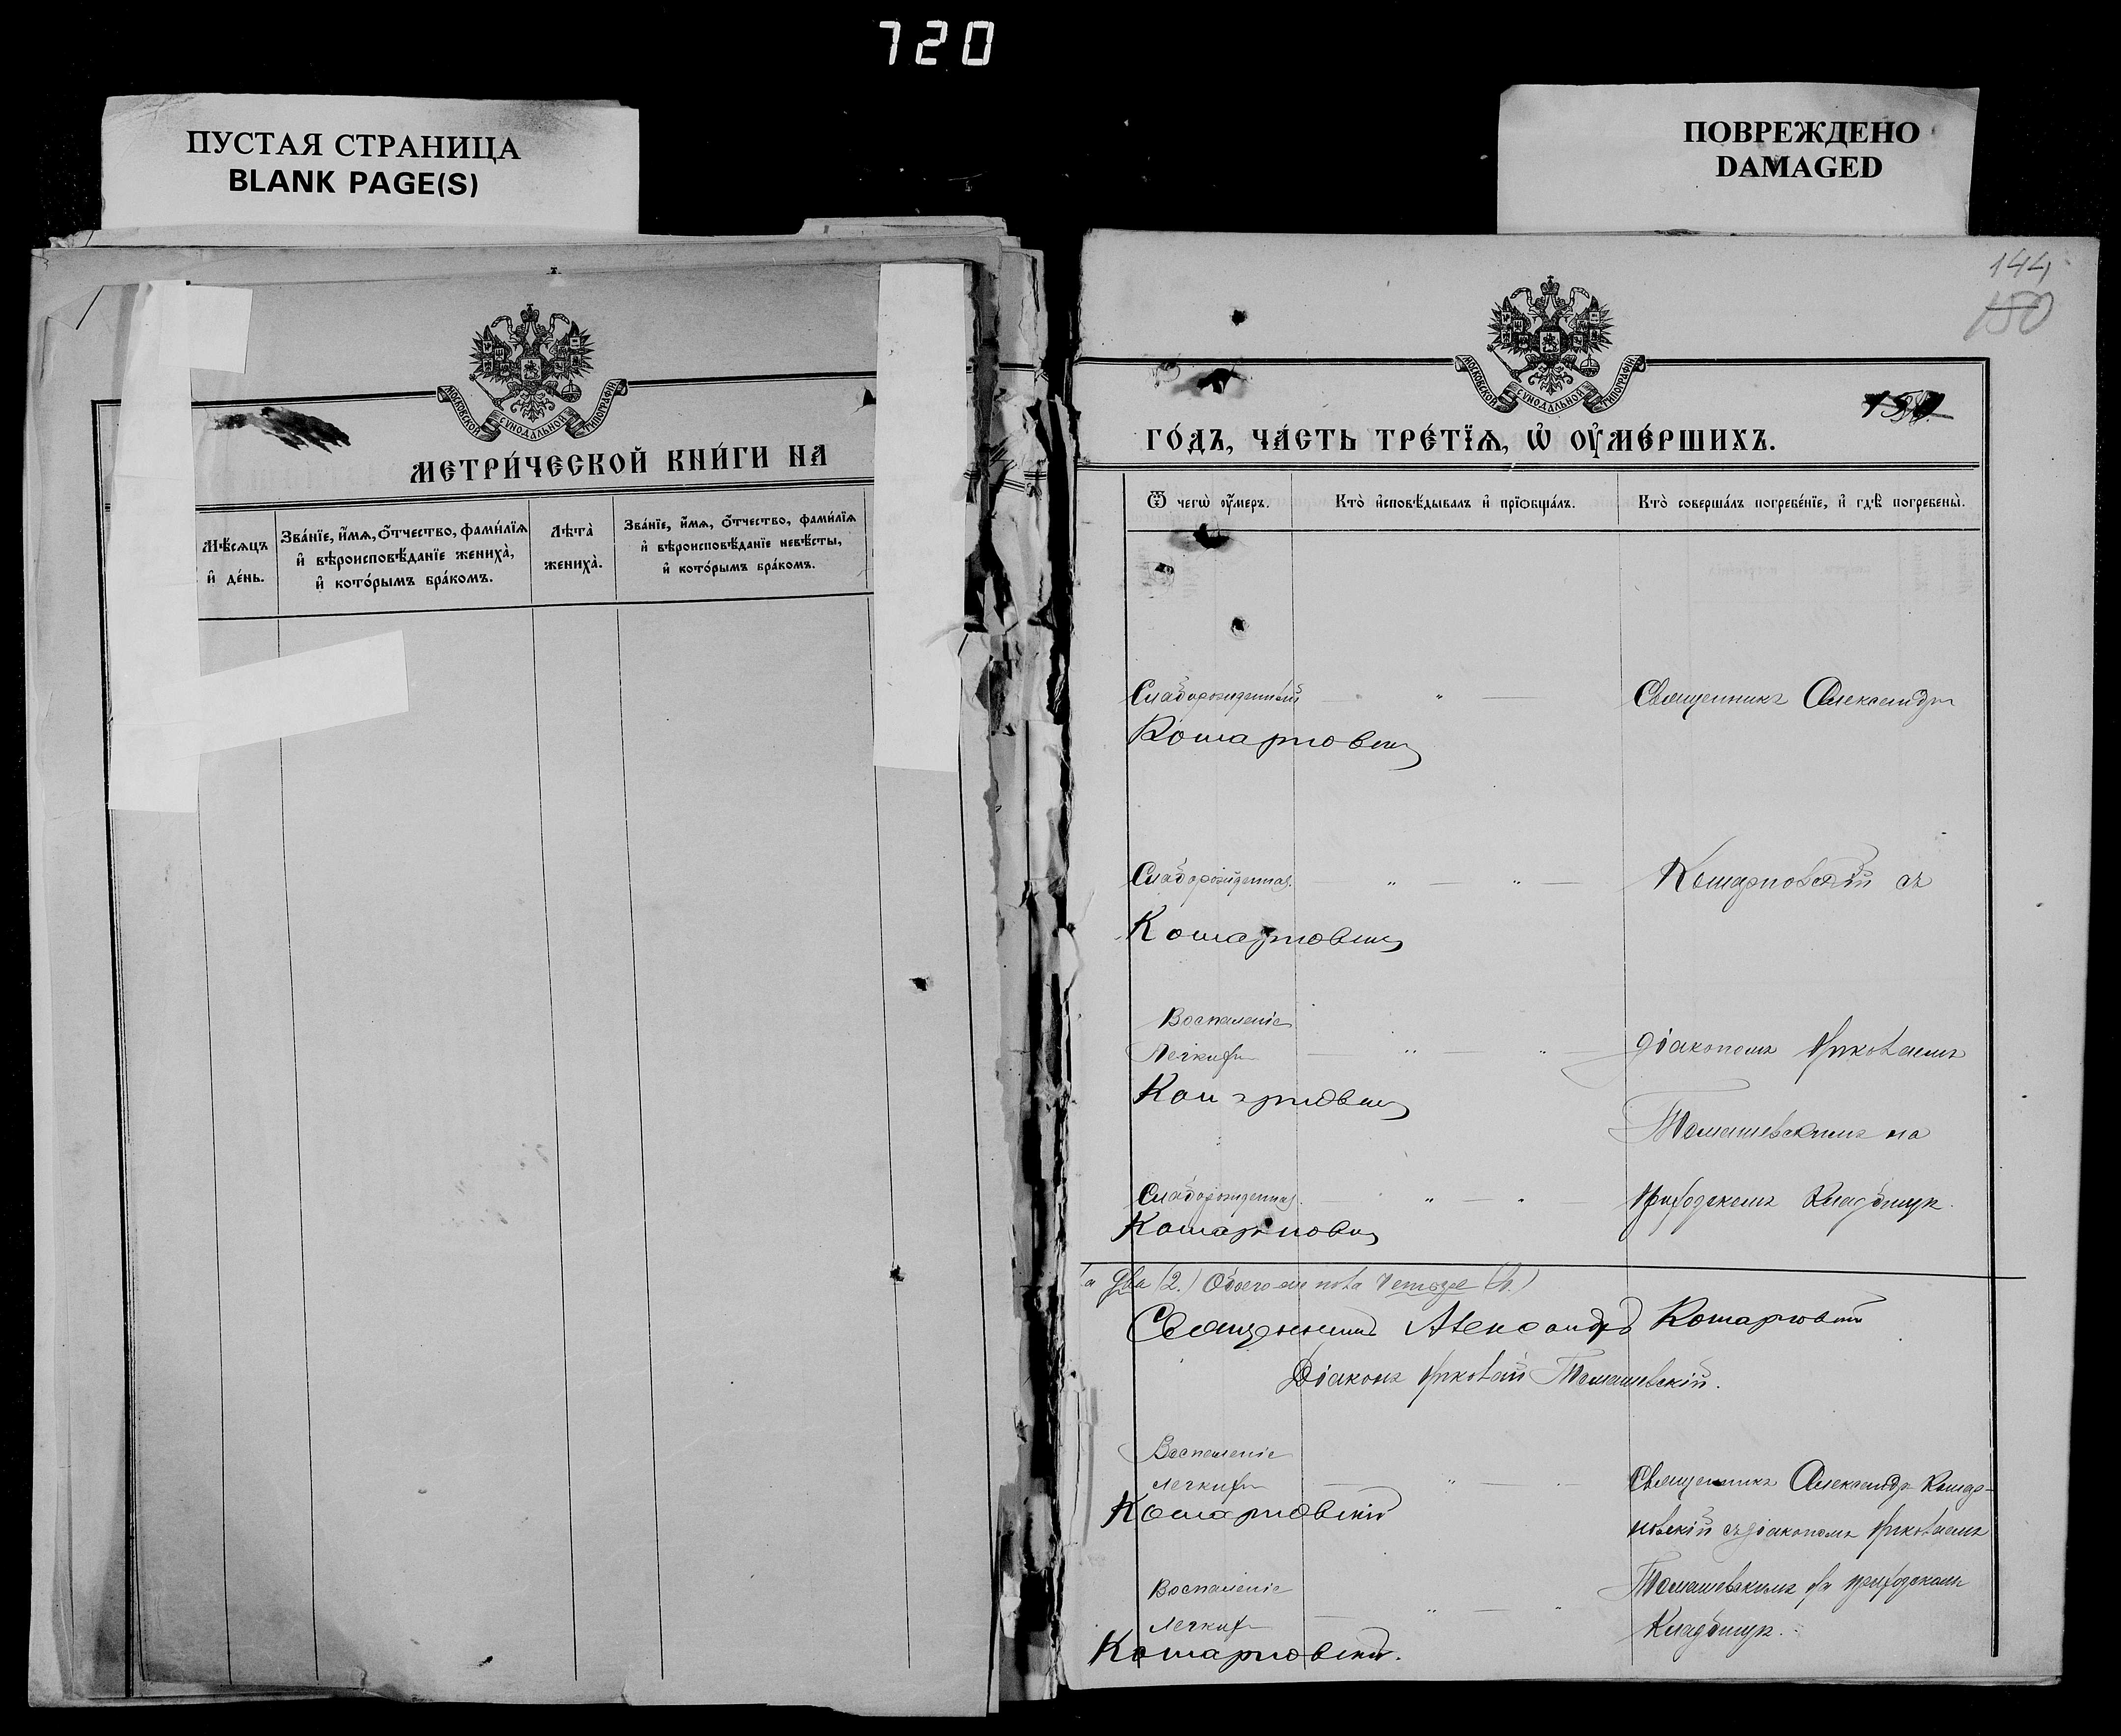 720
ПУСТАЯ СТРАНИЦА
BLANK PAGE(S)
ПОВРЕЖДЕНО
DAMAGED
МОСКОВСКОЙ СѴНОДАЛЬНОЙ ТИПОГРАФІИ
МЕТРИ́ЧЕСКОЙ КНИ́ГИ НА
Мѣ́сяцъ
и҆ де́нь.
Зва́нїе, и҆́мѧ, ѻ҆́тчество, фами́лїѧ
и҆ вѣроисповѣ́данїе жениха̀,
и҆ кото́рымъ бра́комъ.
Лѣта̀
жениха̀.
Зва́нїе, и҆́мѧ, ѻ҆́тчество, фами́лїѧ
и҆ вѣроисповѣ́данїе невѣ́сты,
и҆ кото́рымъ бра́комъ.
144
150
МОСКОВСКОЙ СѴНОДАЛЬНОЙ ТИПОГРАФІИ
ГО́ДЪ, ЧА́СТЬ ТРЕ́ТЇѦ, Ѡ҆ ОУ҆МЕ́РШИХЪ.
Ѿ чегѡ̀ ᲂу҆́меръ.
Кто̀ и҆сповѣ́дывалъ и҆ прїѡбща́лъ.
Кто̀ соверша́лъ погребе́нїе, и҆ гдѣ̀ погребены̀.
Слаборожденный
Священникъ Александръ
Комарновскій
Слаборожденная.
Комарновскій съ
Комарновскій
Воспаленіе
Легкихъ
діакономъ Николаемъ
Комарновскій
Томашевскимъ на
Слаборожденная.
приходскомъ кладбищѣ.
Комарновскій
а два (2.) Обоего же пола четыре (4.)
Священникъ Александръ Комарновскій
Діаконъ Николай Томашевскій.
Воспаленіе
легкихъ
Священникъ Александръ Комар-
Комарновскій
новскій съ діакономъ Николаемъ
Воспаленіе
Томашевскимъ на приходскомъ
легкихъ
кладбищѣ.
Комарновскій.